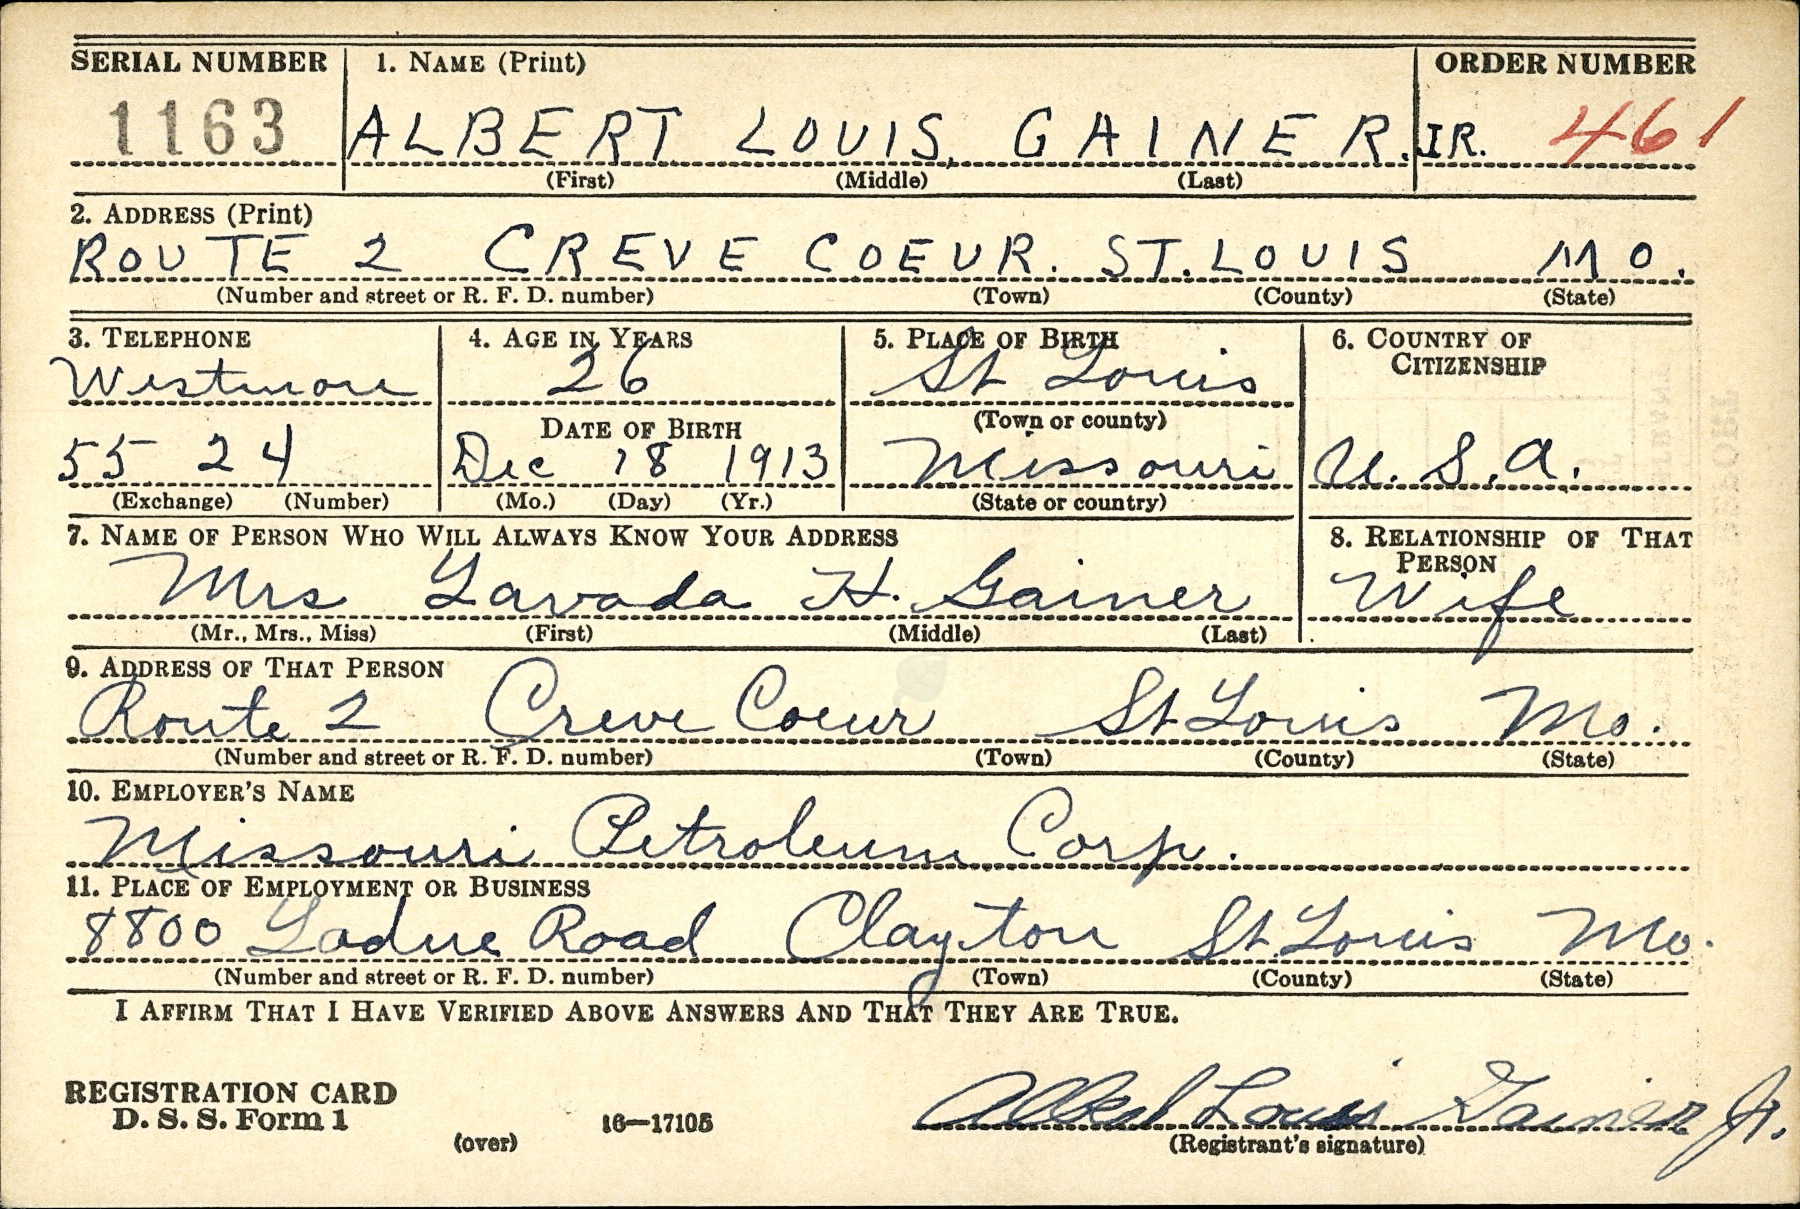 SERIAL NUMBER 1. NAME (Print) ORDER NUMBER
1163 ALBERT LOUIS, GAINER. JR. 461
(First) (Middle) (Last)
2. ADDRESS (Print)
ROUTE 2 CREVE COEUR. ST. LOUIS MO.
(Number and street or R. F. D. number) (Town) (County) (State)
3. TELEPHONE 4. AGE IN YEARS 5. PLACE OF BIRTH 6. COUNTRY OF CITIZENSHIP
Westmore 26 St Louis
DATE OF BIRTH (Town or county)
55 24 Dec 18 1913 Missouri U.S.A.
(Exchange) (Number) (Mo.) (Day) (Yr.) (State or country)
7. NAME OF PERSON WHO WILL ALWAYS KNOW YOUR ADDRESS 8. RELATIONSHIP OF THAT PERSON
Mrs Lavada H. Gainer Wife
(Mr., Mrs., Miss) (First) (Middle) (Last)
9. ADDRESS OF THAT PERSON
Route 2 Creve Coeur St Louis Mo.
(Number and street or R. F. D. number) (Town) (County) (State)
10. EMPLOYER'S NAME
Missouri Petroleum Corp.
11. PLACE OF EMPLOYMENT OR BUSINESS
8800 Ladue Road Clayton St. Louis Mo.
(Number and street or R. F. D. number) (Town) (County) (State)
I AFFIRM THAT I HAVE VERIFIED ABOVE ANSWERS AND THAT THEY ARE TRUE.
REGISTRATION CARD
D. S. S. Form 1 16—17105 Albert Louis Gainer Jr.
(over) (Registrant's signature)